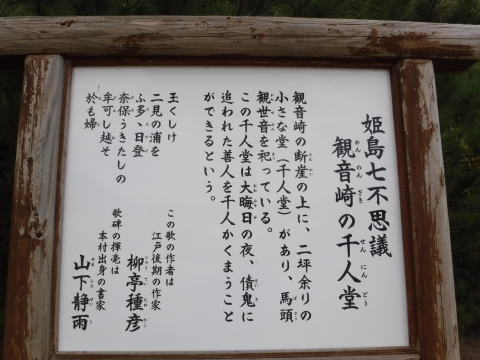 姫島七不思議
観音崎の千人堂
観音崎の断崖の上に、二坪余りの
小さな堂（千人堂）があり、馬頭
観世音を祀っている。
この千人堂は大晦日の夜、債鬼に
追われた善人を千人かくまうこと
ができるという。
玉くしけ
二見の浦を
ふ多ゝ日登
奈保うきたしの
牟可し越そ
於も婦
この歌の作者は
江戸後期の作家
柳亭種彦
歌碑の揮亳は
本村出身の書家
山下静雨